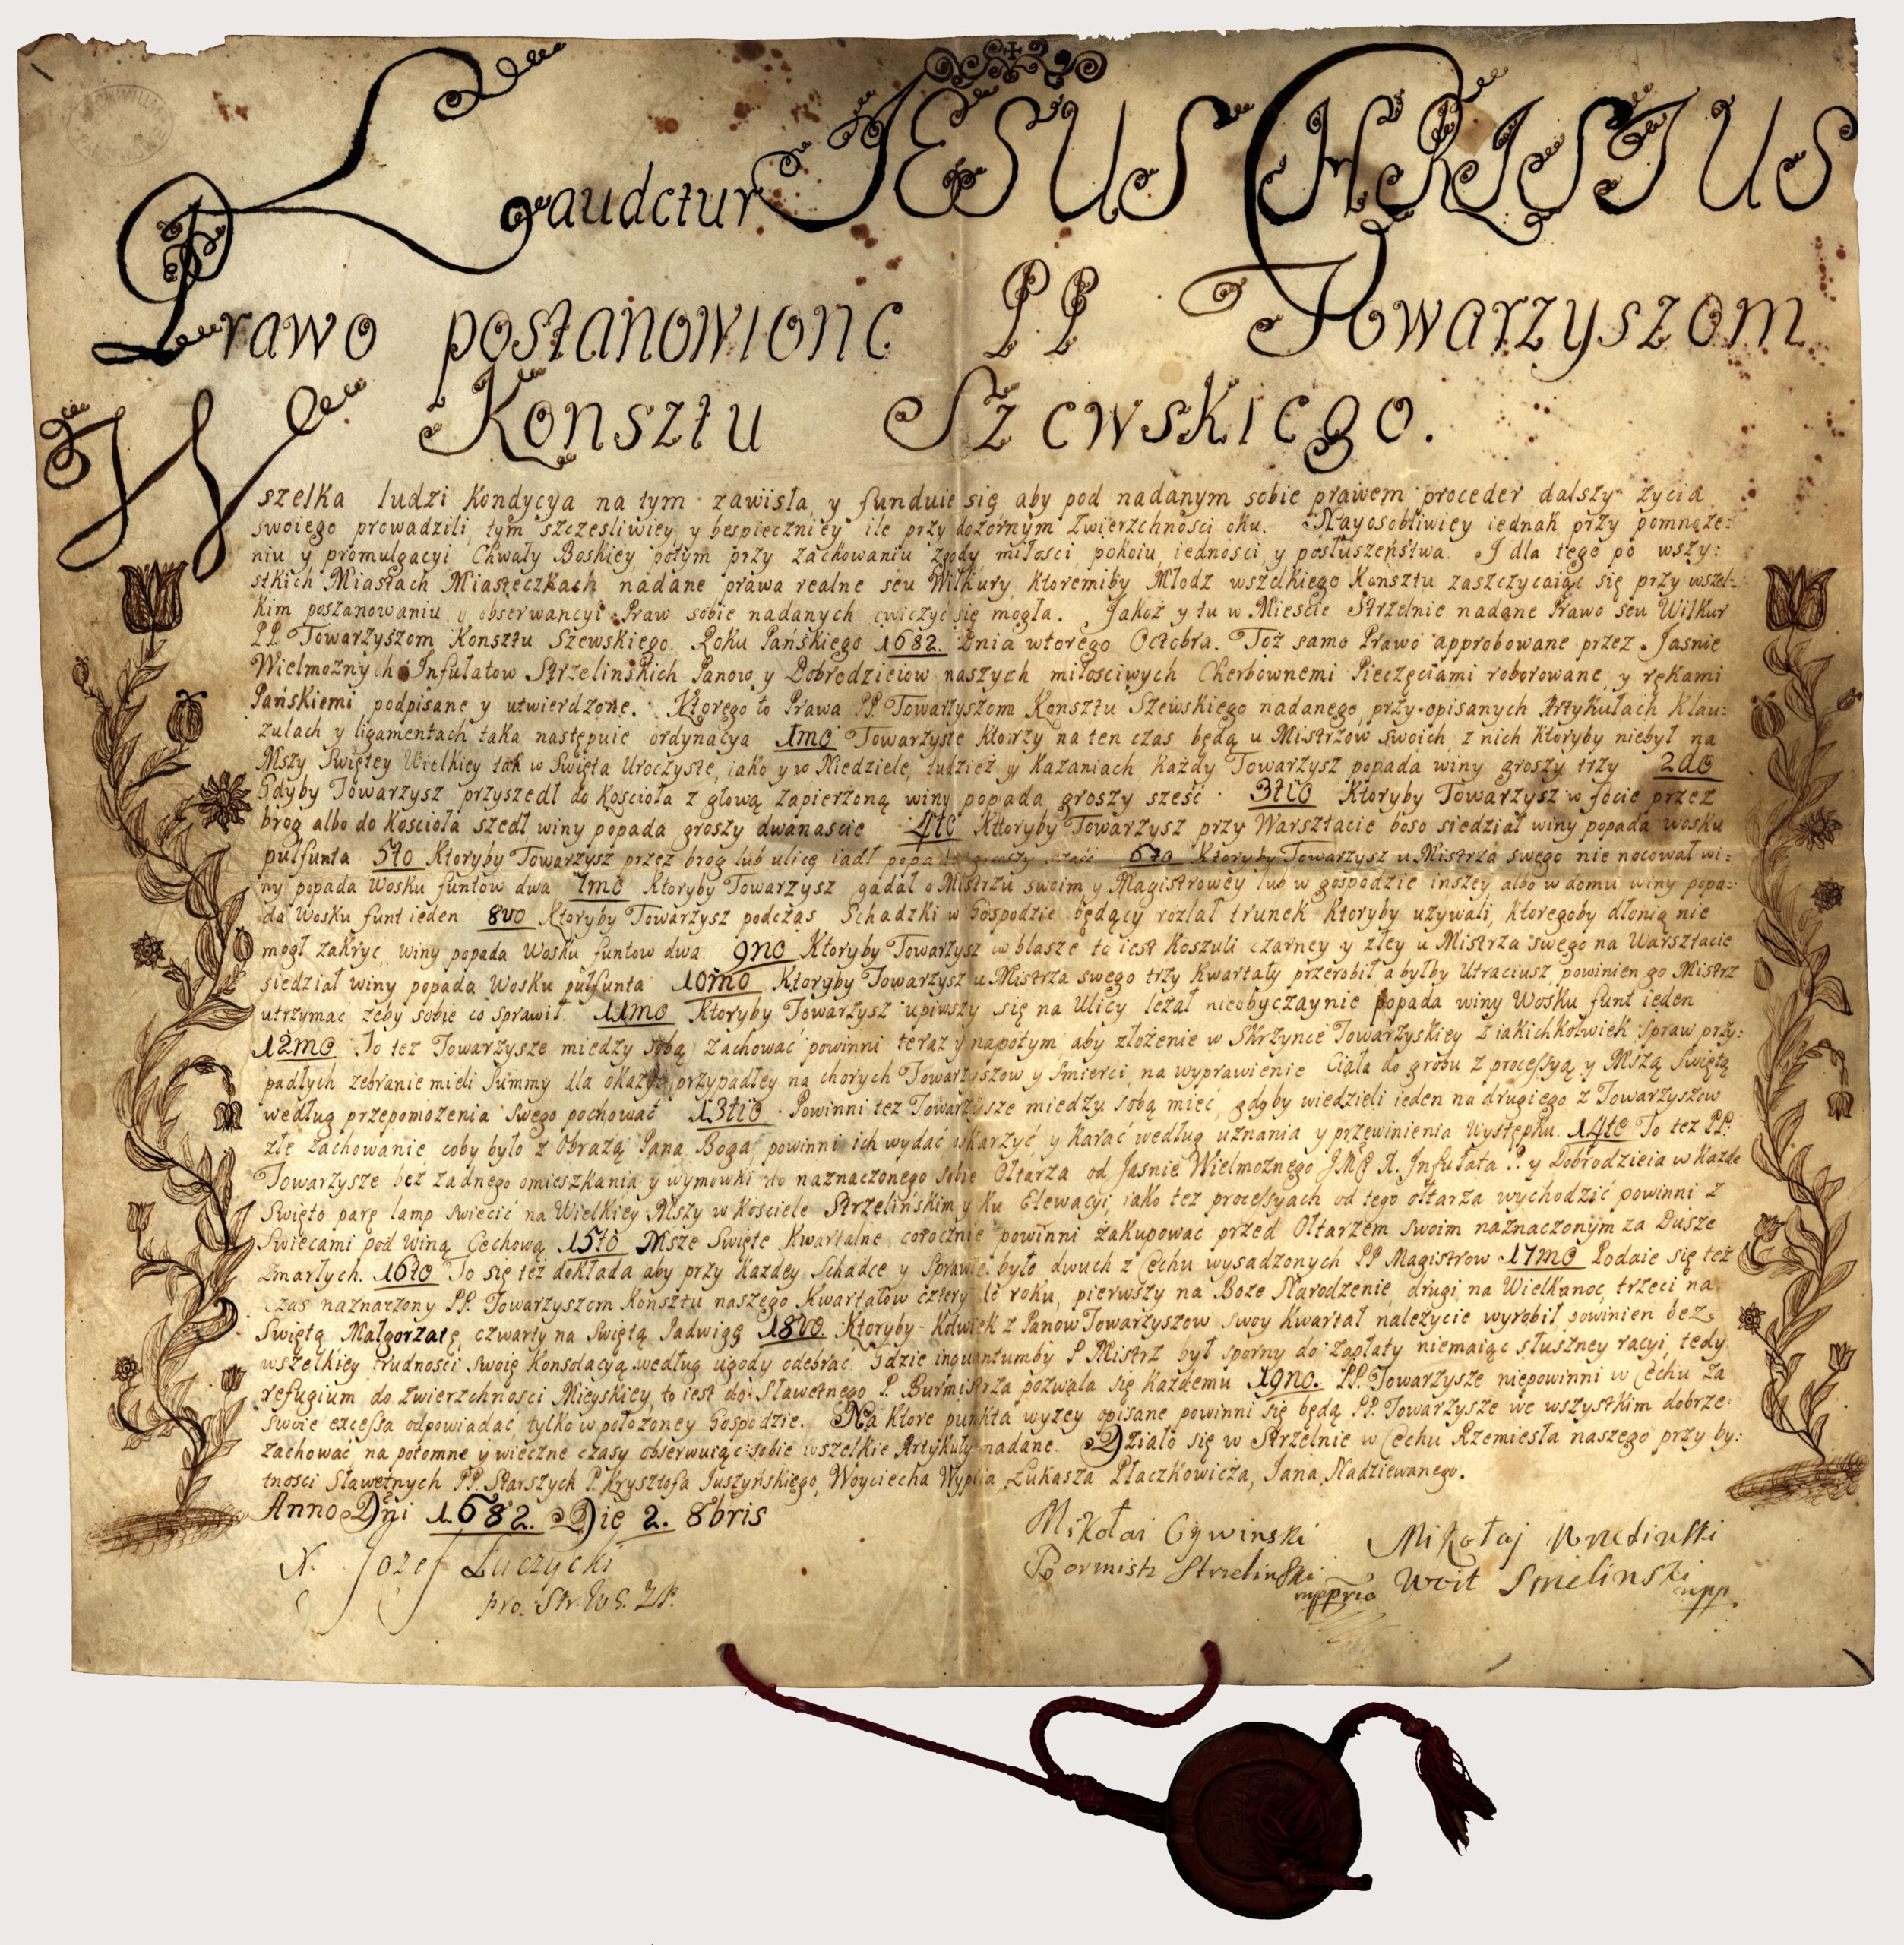 Laudetur JESUS CHRISTUS
Prawo postanowione PP Towarzyszom
Konsztu Szewskiego.
Wszelka ludzi Kondycya na tym zawisła, y funduie się aby pod nadanym sobie prawem proceder dalszy życia
swoiego prowadzili, tym szczesliwiey, y bespieczniey ile przy dozornym Zwierzchności oku. Nayosobliwiey iednak przy pomnoże=
niu y promulgacyi Chwały Boskiey, potym przy zachowaniu zgody, miłosci, pokoiu, iedności, y posłuszeństwa. I dla tego po wszy:
stkich Miastach Miasteczkach nadane prawa realne seu Wilkury, ktoremiby Młodz wszelkiego Konsztu zaszczycaiąc się przy wszel-
kim poszanowaniu y obserwancyi Praw sobie nadanych cwiczyć się mogła. Jakoż y tu w Mieście Strzelnie nadane Prawo seu Wilkur
PP. Towarzyszom Konsztu Szewskiego Roku Pańskiego 1682. Dnia wtorego Octobra. Toż samo Prawo approbowane przez Jasnie
Wielmoznych Infułatow Strzelinskich Panow y Dobrodzieiow naszych miłosciwych Cherbownemi Pieczęciami roborowane y rękami
Pańskiemi podpisane y utwierdzone. Ktorego to Prawa PP. Towarzyszom Konsztu Szewskiego nadanego przy opisanych Artykułach Klau:
zulach y ligamentach taka następuie ordynacya 1mo Towarzysze ktorzy na ten czas będą u Mistrzow swoich, z nich ktoryby niebył na
Mszy Swiętey Wielkiey tak w Swięta Uroczyste, iako y w Niedziele, tudzież y Kazaniach Każdy Towarzysz popada winy groszy trzy 2do
Gdyby Towarzysz przyszedł do Koscioła z głową zapierzoną winy popada groszy sześć 3tio Ktoryby Towarzysz w focie przez
brog albo do Koscioła szedł winy popada groszy dwanascie 4to Ktoryby Towarzysz przy Warsztacie boso siedział winy popada wosku
pulfunta 5to Ktoryby Towarzysz przez brog lub ulicę iadł popada groszy sześć 6to Ktoryby Towarzysz u Mistrza swego nie nocował wi=
ny popada Wosku funtow dwa 7mo Ktoryby Towarzysz gadał o Mistrzu swoim y Magistrowey lub w gospodzie inszey albo w domu winy popa=
da Wosku funt ieden 8vo Ktoryby Towarzysz podczas Schadzki w Gospodzie będący rozlał trunek ktoryby uzywali, ktoregoby dłonią nie
mogł zakryc, winy popada Wosku funtow dwa 9no Ktoryby Towarzysz w blasze to iest koszuli czarney y złey u Mistrza swego na Warsztacie
siedział winy popada Wosku pułfunta 10mo Ktoryby Towarzysz u Mistrza swego trzy Kwartały przerobił a byłby Utraciusz, powinien go Mistrz
utrzymac zeby sobie co sprawił. 11mo Ktoryby Towarzysz upiwszy się na Ulicy leżał nieobyczaynie popada winy Wosku funt ieden
12mo To tez Towarzysze miedzy sobą zachować powinni teraz y napotym, aby złożenie w Skrzynce Towarzyskiey z iakichkolwiek Spraw przy:
padłych zebranie mieli Summy dla okazyi przypadłey na chorych Towarzyszow y Smierci, na wyprawienie Ciała do grobu z processyą y Mszą Swiętą
według przepomożenia swego pochować 13tio Powinni tez Towarzysze miedzy sobą miec, gdyby wiedzieli ieden na drugiego z Towarzyszow
złe zachowanie coby było z Obrazą Pana Boga, powinni ich wydać oskarzyć, y karać według uznania y przewinienia Występku. 14to To tez PP.
Towarzysze bez żadnego omieszkania y wymowki do naznaczonego sobie Ołtarza od Jasnie Wielmożnego JMC X. Infułata P. y Dobrodzieia w każde
Swięto parę lamp swiecić na Wielkiey Mszy w Kosciele Strzelińskim y ku Elewacyi, iako tez processyach od tego ołtarza wychodzić powinni z
Swiecami pod winą Cechową 15to Msze Swięte Kwartalne corocznie powinni żakupowac przed Ołtarzem swoim naznaczonym za Dusze
Zmarłych. 16to To się też dokłada aby przy Kazdey Schadce y Sprawie było dwuch z Cechu wysadzonych PP Magistrow 17mo Podaie się też
czas naznaczony PP. Towarzyszom Konsztu naszego Kwartałow cztery do roku, pierwszy na Boze Narodzenie, drugi na Wielkanoc, trzeci na
Swiętą Małgorzatę, czwarty na Swiętą Jadwigę 18vo Ktoryby-Kolwiek z Panow Towarzyszow swoy Kwartał należycie wyrobił powinien bez
wszelkiey trudności swoię Konsolacyą według ugody odebrac. Gdzie inquantumby P Mistrz był sporny do zapłaty niemaiąc słuszney racyi, tedy
refugium do zwierzchności Mieyskiey, to iest do Sławetnego P. Burmistrza pozwala się każdemu 19no. PP. Towarzysze niepowinni w Cechu za
swoie excessa odpowiadać tylko w położoney Gospodzie. Na ktore punkta wyzey opisane powinni się będą PP. Towarzysze we wszystkim dobrze
zachować, na potomne y wieczne czasy obserwuiąc sobie wszelkie Artykuły nadane. Działo się w Strzelnie w Cechu Rzemiesła naszego przy by:
tności Sławetnych PP. Starszych P. Krysztofa Juszyńskiego, Woyciecha Wypija, Łukasza Płaczkowicża, Jana Nadziewanego.
Anno Dni 1682. Die 2. 8bris
N. Jozef Łuczycki
pro. Str.
Mikołai Cywinski
Bormistz Strzelinski mppria
Mikołaj
Woit Smelinski mpp.